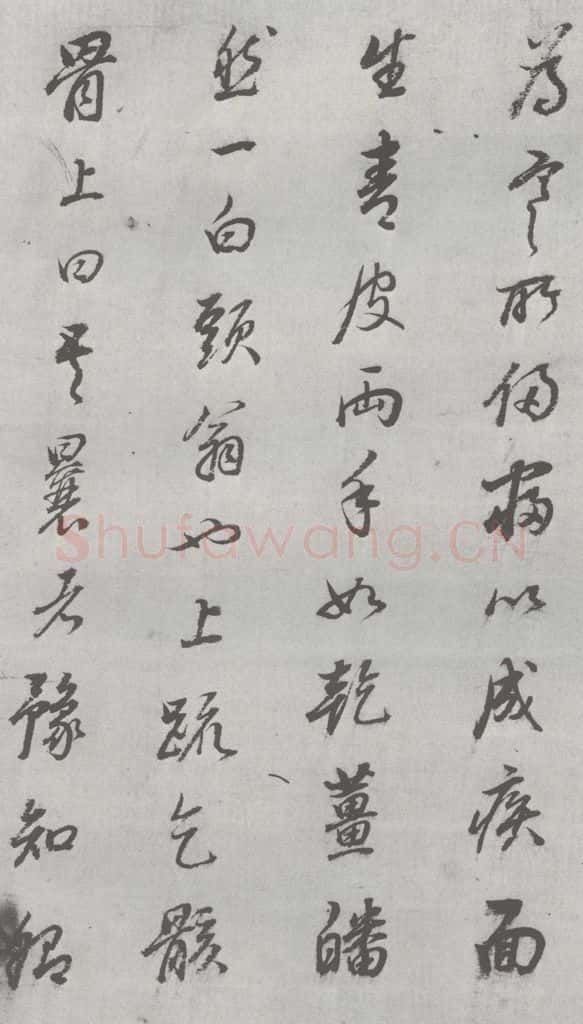 為虐所侵竊以成疾面
生青皮兩手如乾薑皤
然一白頭翁也上疏乞骸
骨上曰是曩者豫知卿
Shufawang.CN